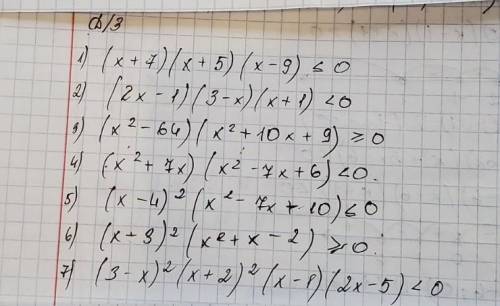 Д/З
1) (x+7)(x+5)(x-9) ≤ 0
2) (2x-1)(3-x)(x+1) < 0
3) (x²-64)(x²+10x+9) ≥ 0
4) (x²+7x)(x²-7x+6) < 0.
5) (x-4)²(x²-7x+10) ≤ 0
6) (x+3)²(x²+x-2) ≥ 0.
7) (3-x)²(x+2)²(x-1)(2x-5) < 0